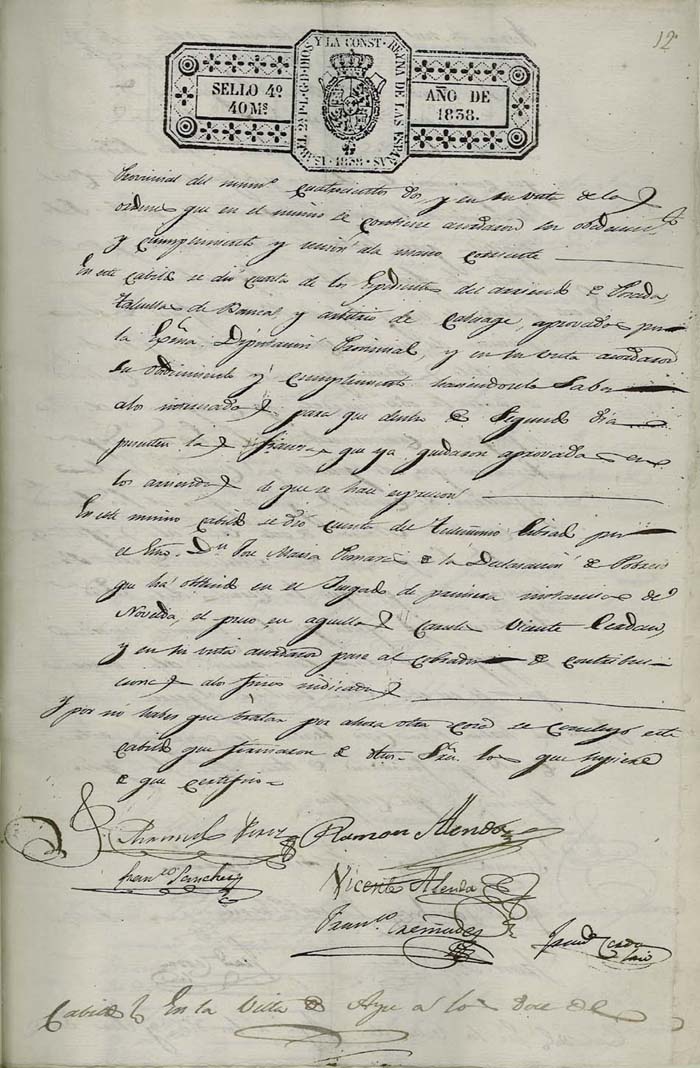 12
ISABEL 2ª P.L.G.D.DIOS Y LA CONST. REYNA DE LAS ESPAÑAS 1838
SELLO 4º
40 Ms
AÑO DE
1838.
Provincial del num.º cuatrocientos dos, y en su vista de las
ordenes que en el mismo se contiene acordaron su obedecim.to
y cumplimiento y union al de la mano corriente
En este cabildo se dió cuenta de los Expedientes del arriendo de Posada
de Barca, y arbitrio de, aprovados por
la Exma. Diputacion Provincial, y en su vista acordaron
su obedecimiento y cumplimento haciendoselo saber
a los interesados para que dentro de segundo dia
presenten las fianzas que ya quedaron aprovadas en
los arriendos de que se hace espresion
En este mismo cabildo se dió cuenta del testimonio librado por
el Esno. Dn. Jose Maria de la Declaracion de Pobreza
que há obtenido en el Juzgado de primera instancia de
Novelda, el preso en aquellas Carceles Vicente Cerdan,
y en su vista acordaron pase al cobrador de contribu-
ciones a los fines indicados
Y por no haber que tratar por ahora otra cosa se concluyó este
cabildo que firmaron de dhos. Sres. los que supieron
de que certifico
Manuel Perez Ramon Alenda
Franco. Sanchez
Vicente Alenda
Franco. Cremades
Cabildo En la Villa de Aspe a los doce de